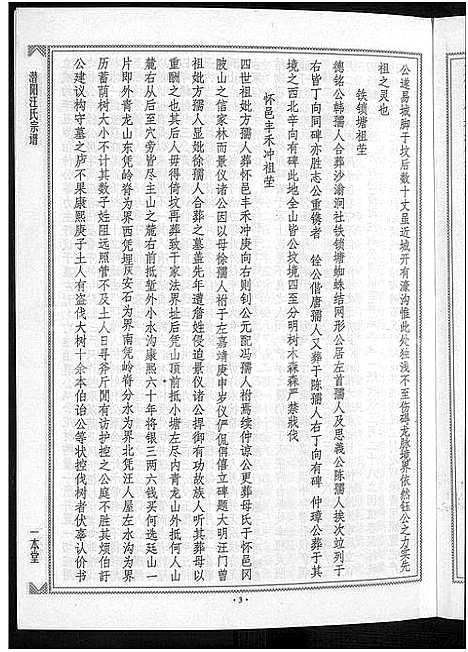 公遂易城脚于坟后数十丈虽近城开有濠沟惟此处独浅不至伤碍龙脉境界依然钰公之力实先
祖之灵也
铁锁塘祖茔
德铭公韩孺人合葬沙滃洞社铁锁塘蜘蛛结网形公居左首孺人及思義公陈孺人挨次竝列于
右皆丁向同碑亦胜志公重镌者 铨公偕唐孺人又葬于陈孺人右丁向有碑 仲璋公葬于其
境之西北辛向有碑此地全山皆公坟境四至分明树木森森严禁戕伐
怀邑丰禾冲祖茔
四世祖妣方孺人葬怀邑丰禾冲庚向右则钊公元配冯孺人祔焉续仲谅公更葬母氏于怀邑冈
陂山之信家林而景仪诸公因以母徐孺人祔于左嘉靖庚申岁仪俨侃偁僖立碑题大明汪门曾
祖妣方孺人显妣徐孺人合葬之墓盖先年遭詹姓侵迫景仪诸公捍御有功故族人听其葬母以
重酬之也其后人毋得倚坟再葬致干家法界址后凭山顶前抵小塘左尽内青龙山外抵何人山
麓右从后至穴旁皆尽主山之麓右前抵堑外小水沟康熙六十年将银三两六钱买何选廷山一
片即外青龙山东凭岭脊为界西凭埋灰安石为界南凭岭脊分水为界北凭汪人屋左水沟为界
历蓄荫树大小不计其数子姓阻远照管不及土人日寻斧斤閒有访护控之公庭不胜其烦伯訏
公建议构守墓之庐不果康熙庚子土人有盗伐大树十余本伯诒公等状控伐树者伏辜认价书
潜阳汪氏宗谱
一本堂
·3·